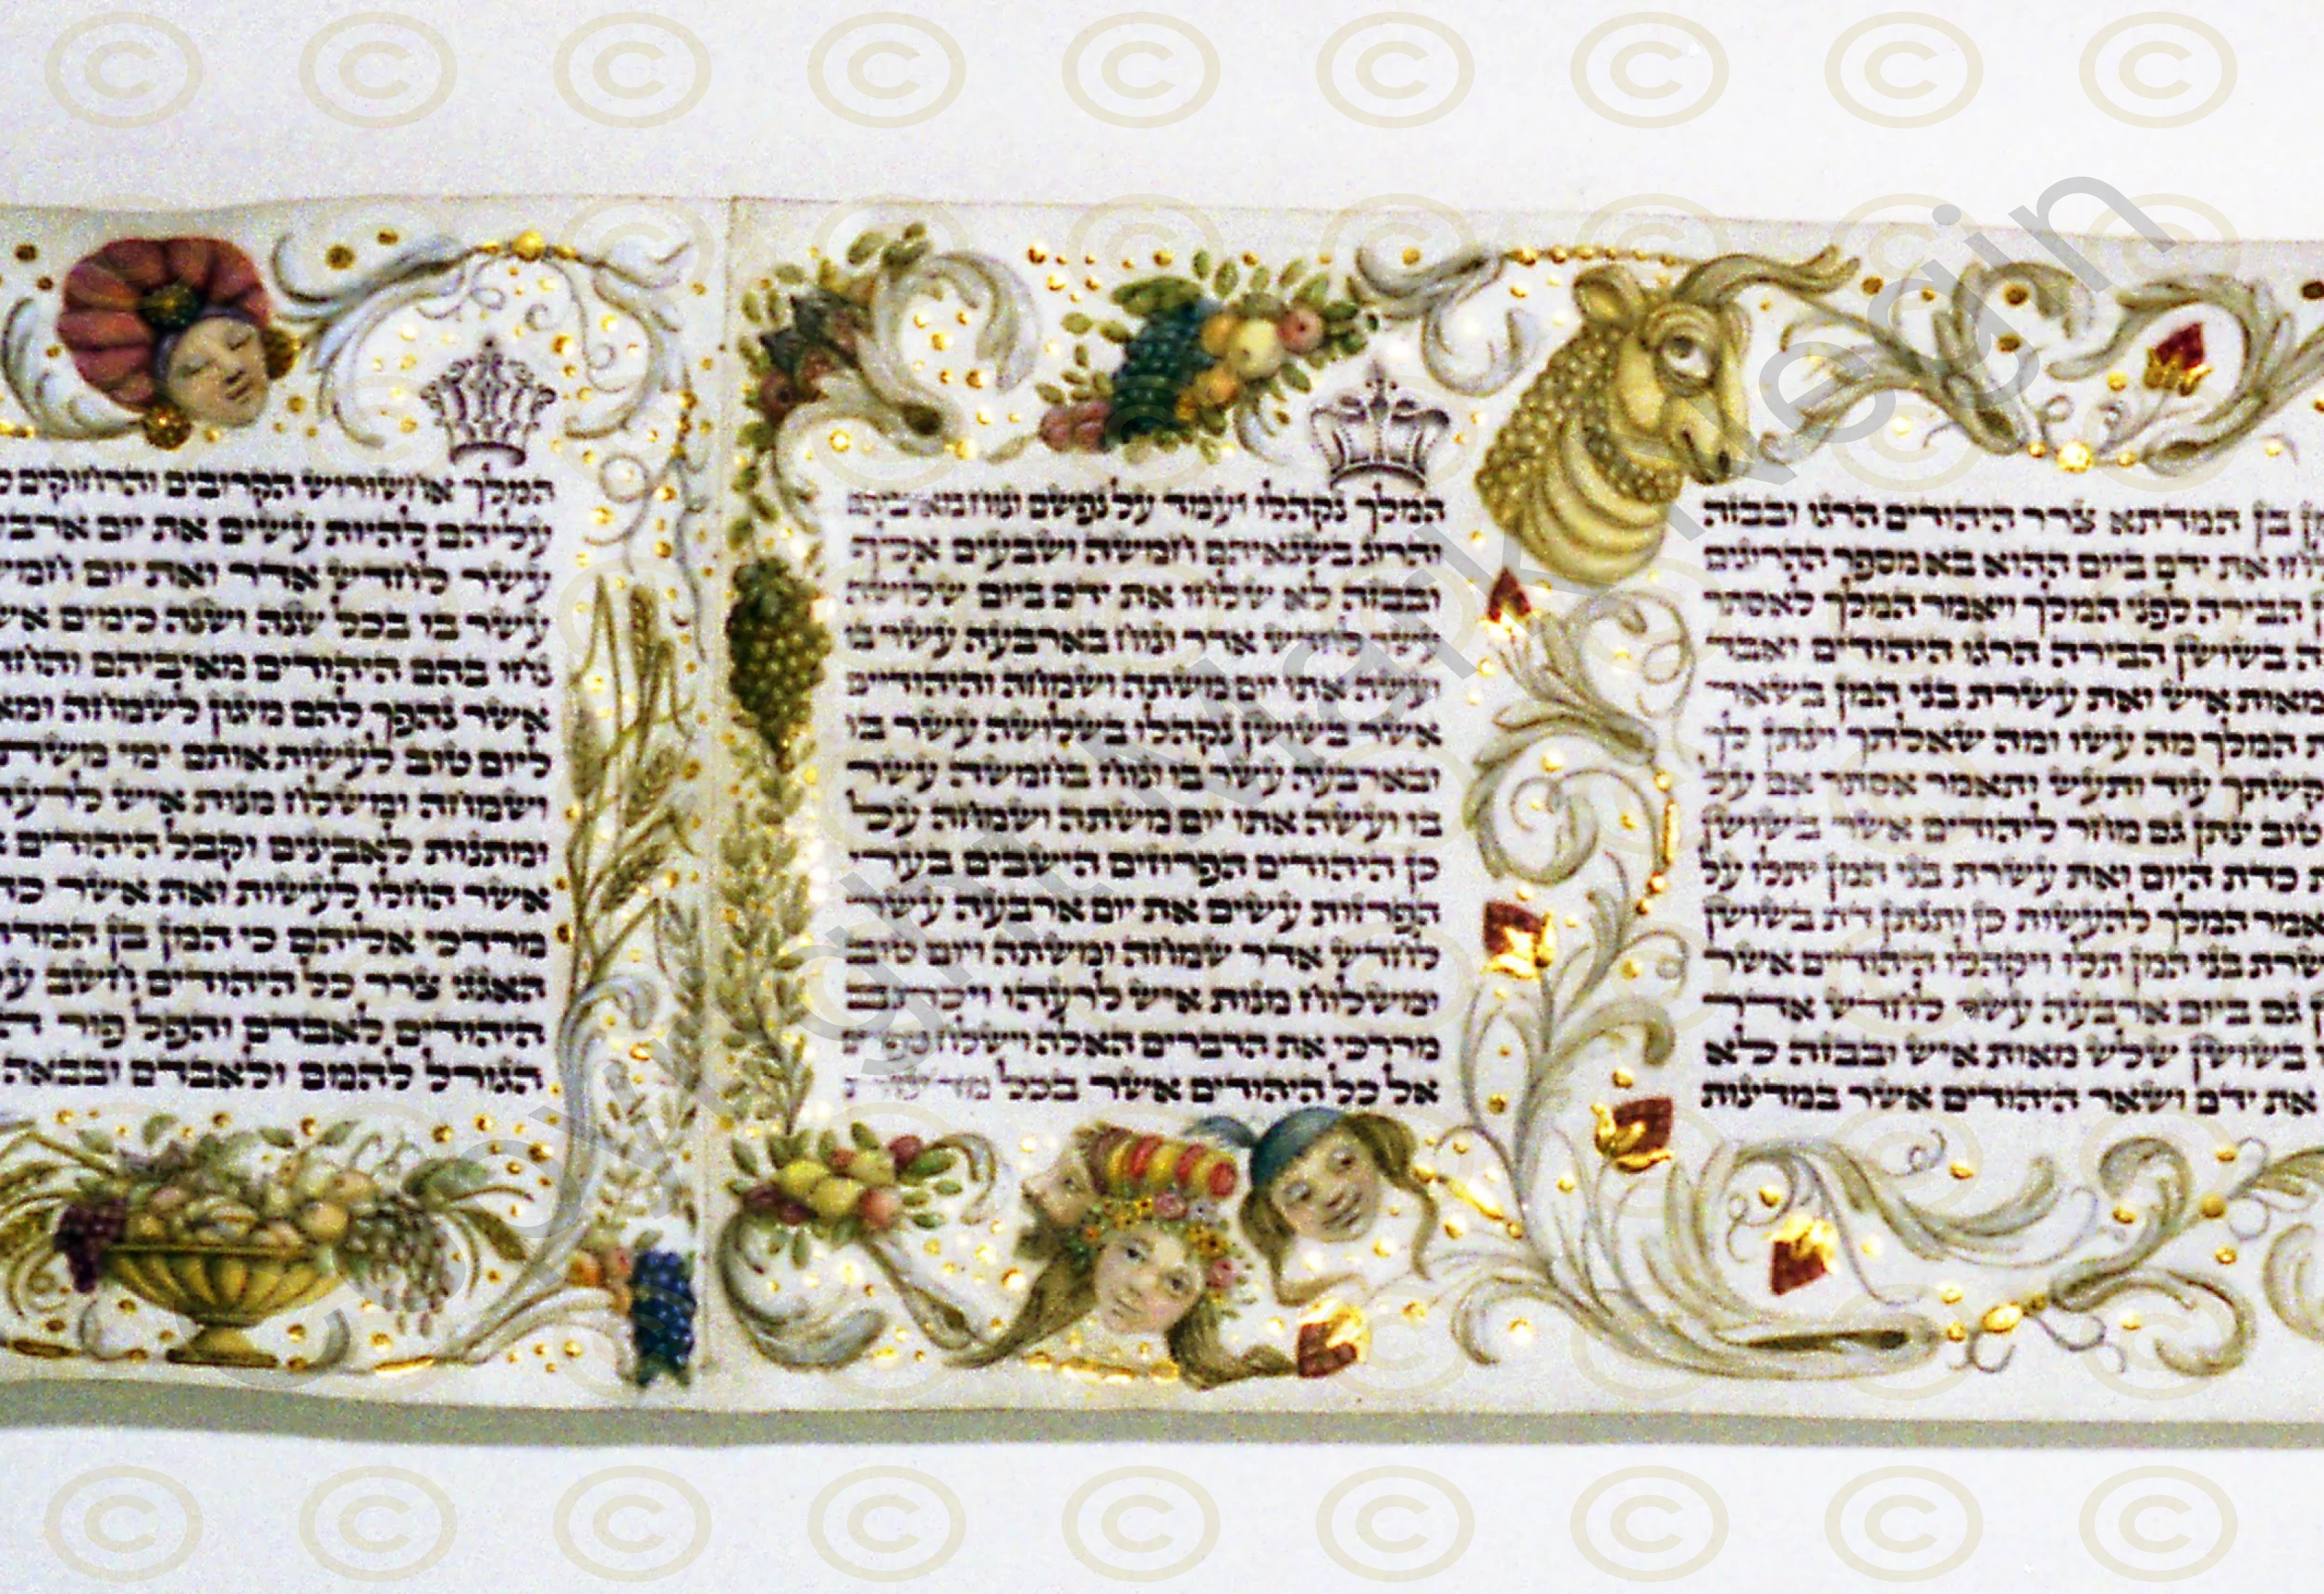 ן בן המדתא צרר היהודים הרגו ובבזה
לחו את ידם ביום ההוא בא מספר ההרוגים
ן הבירה לפני המלך ויאמר המלך לאסתר
ה בשושן הבירה הרגו היהודים ואבד
מאות איש ואת עשרת בני המן בשאר
ת המלך מה עשו ומה שאלתך וינתן לך
קשתך עוד ותעש ותאמר אסתר אם על
טוב ינתן גם מחר ליהודים אשר בשושן
ת כדת היום ואת עשרת בני המן יתלו על
אמר המלך להעשות כן ותנתן דת בשושן
שרת בני המן תלו ויקהלו היהודיים אשר
גם ביום ארבעה עשר לחדש אדר
בשושן שלש מאות איש ובבזה לא
את ידם ושאר היהודים אשר במדינות
המלך נקהלו ועמד על נפשם ונוח מאיביהם
והרוג בשנאיהם חמשה ושבעים אלף
ובבזה לא שלחו את ידם ביום שלושה
עשר לחדש אדר ונוח בארבעה עשר בו
ועשה אתו יום משתה ושמחה והיהודיים
אשר בשושן נקהלו בשלושה עשר בו
ובארבעה עשר בו ונוח בחמשה עשר
בו ועשה אתו יום משתה ושמחה על
כן היהודים הפרוזים הישבים בערי
הפרזות עשים את יום ארבעה עשר
לחדש אדר שמחה ומשתה ויום טוב
ומשלוח מנות איש לרעהו ויכתב
מרדכי את הדברים האלה וישלח ספרים
אל כל היהודים אשר בכל מדינות
המלך אחשורוש הקרובים והרחוקים
עליהם להיות עשים את יום ארבע
עשר לחדש אדר ואת יום חמי
עשר בו בכל שנה ושנה כימים אש
נחו בהם היהודים מאיביהם והחד
אשר נהפך להם מיגון לשמחה ומא
ליום טוב לעשות אותם ימי משת
ושמחה ומשלח מנות איש לרעה
ומתנות לאבינים וקבל היהודים
אשר החלו לעשות ואת אשר כת
מרדכי אליהם כי המן בן המדת
האגגי צרר כל היהודים חשב על
היהודים לאבדם והפל פור ה
הגורל להמם ולאבדם ובבאה
Copyright Mark Negin